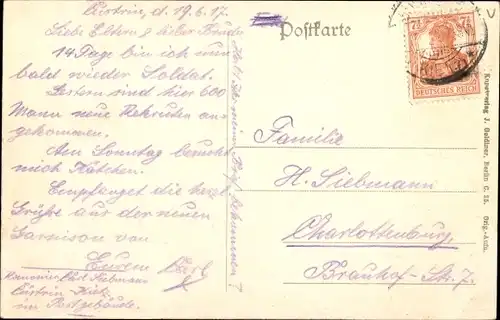 Cüstrin, d. 19.6.17.
Liebe Eltern & lieber Bruder
14 Tage bin ich nun
bald wieder Soldat.
Gestern sind hier 600
Mann neue Rekruten an-
gekommen.
Am Sonntag besucht
mich Kätchen.
Empfanget die herzl.
Grüße aus der neuen
Garnison von
Eurem Karl
Kanonier Karl Siebmann
Cüstrin Kietz
im Postgebäude.
Habt Ihr meinen Brief bekommen?
Postkarte
7½ 7½
DEUTSCHES REICH
Familie
H. Siebmann
Charlottenburg
Brauhof-Str. 7.
Kunstverlag J. Goldiner, Berlin C. 25. Orig.-Aufn.